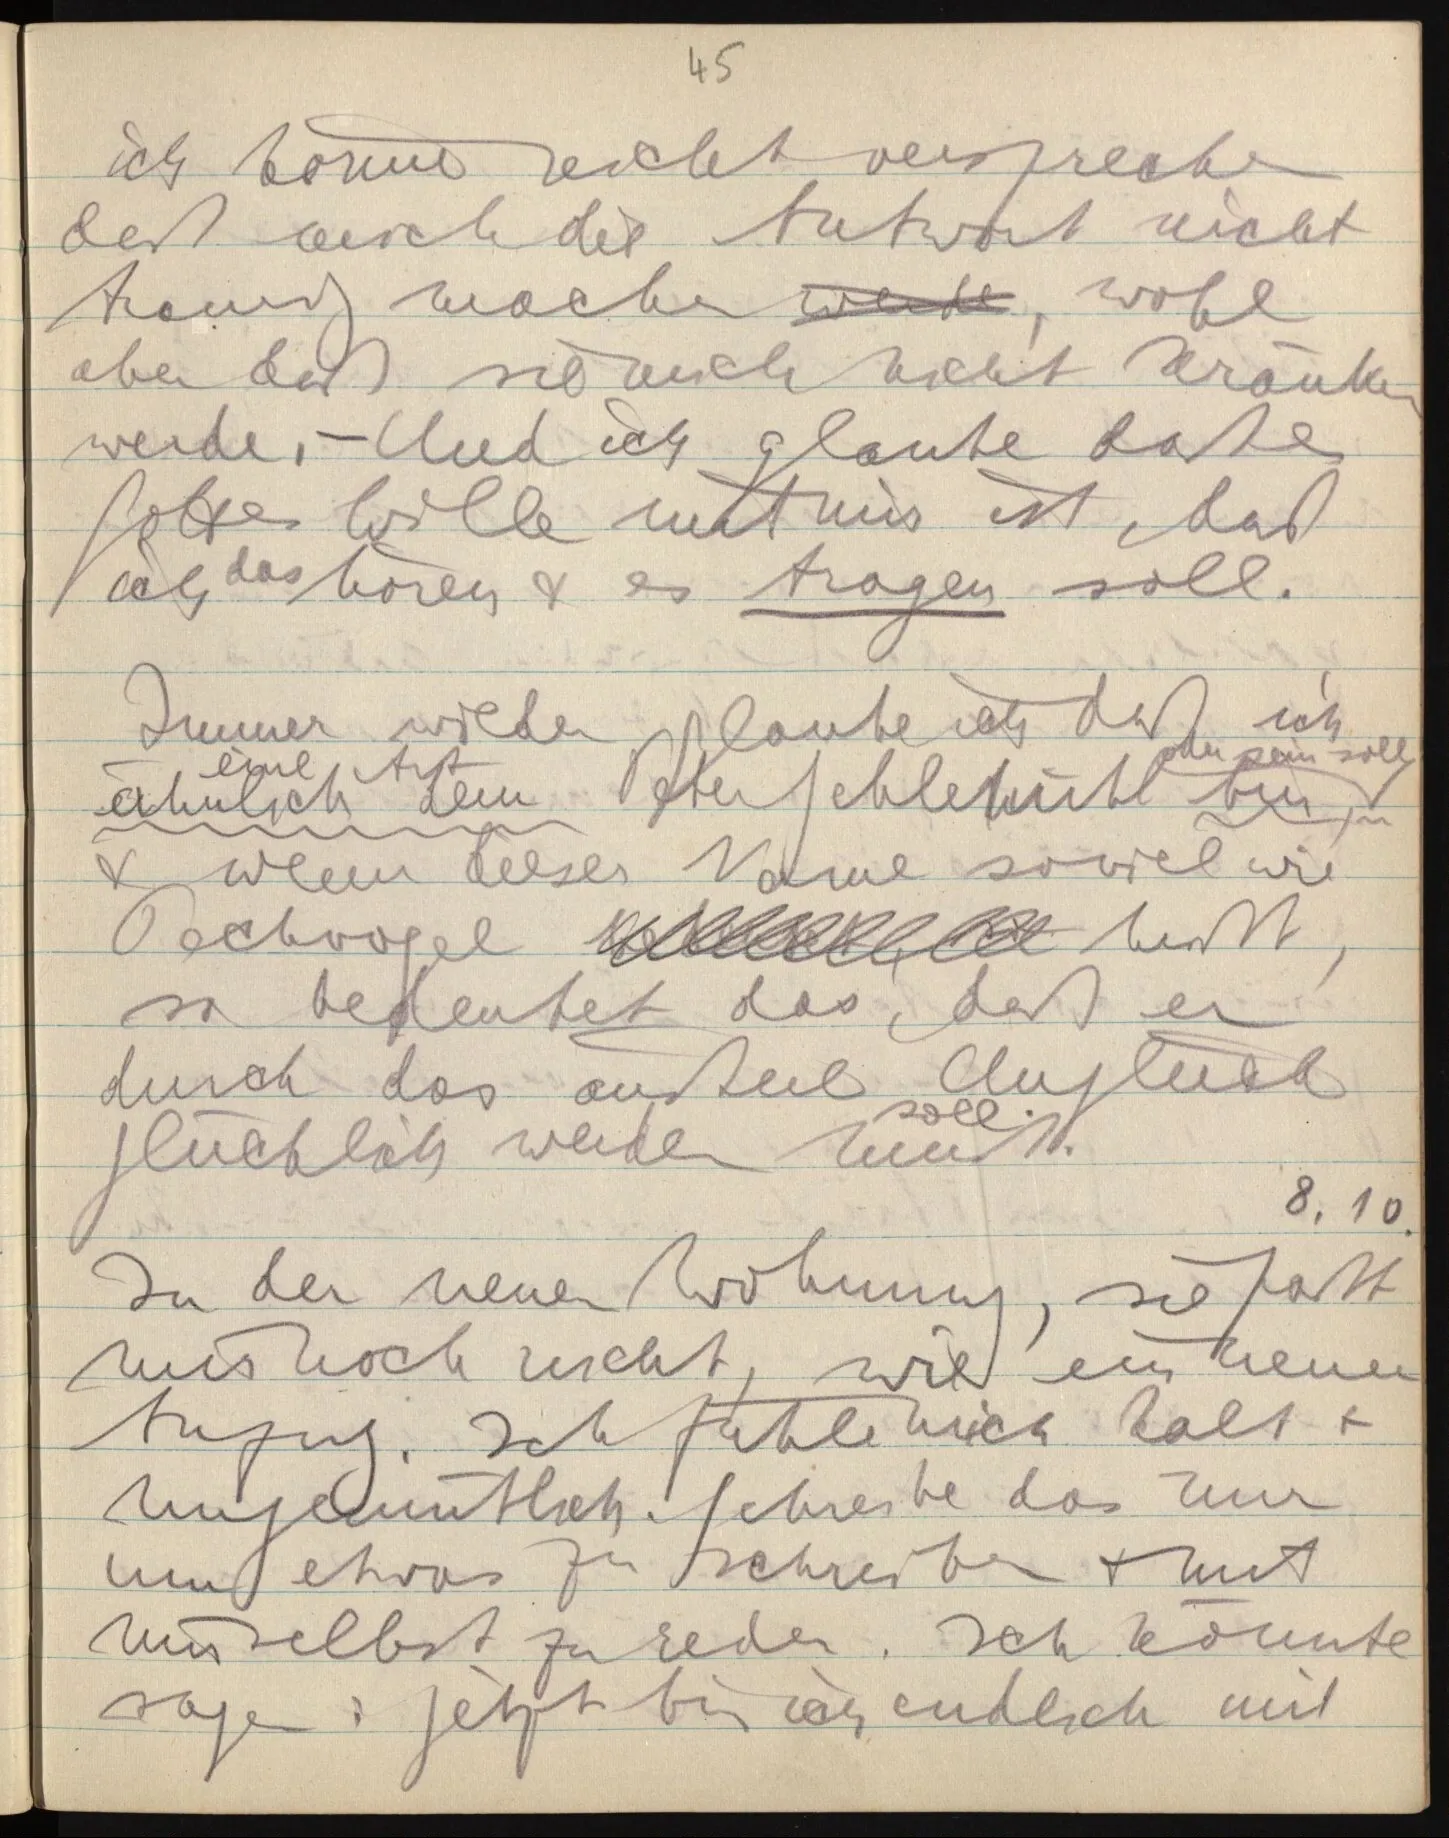 45
ich könne nicht versprechen
daß mich die Antwort nicht
traurig machen werde, wohl
aber daß sie mich nicht kränken
werde. – Und ich glaube daß es
Gottes Wille mit mir ist, daß
ich das hören & es tragen soll.
Immer wieder glaube ich daß ich
eine Art oder sein soll
ähnlich dem Peter Schlemihl bin,
& wenn dieser Name soviel wie
Pechvogel heißt,
so bedeutet das, daß er
durch das äußere Unglück
soll.
glücklich werden muß.
8. 10.
In der neuen Wohnung, sie paßt
mir noch nicht, wie ein neuer
Anzug. Ich fühle mich kalt +
ungemütlich. Schreibe das nur
um etwas zu schreiben + mit
mir selbst zu reden. Ich könnte
sagen: jetzt bin ich endlich mit